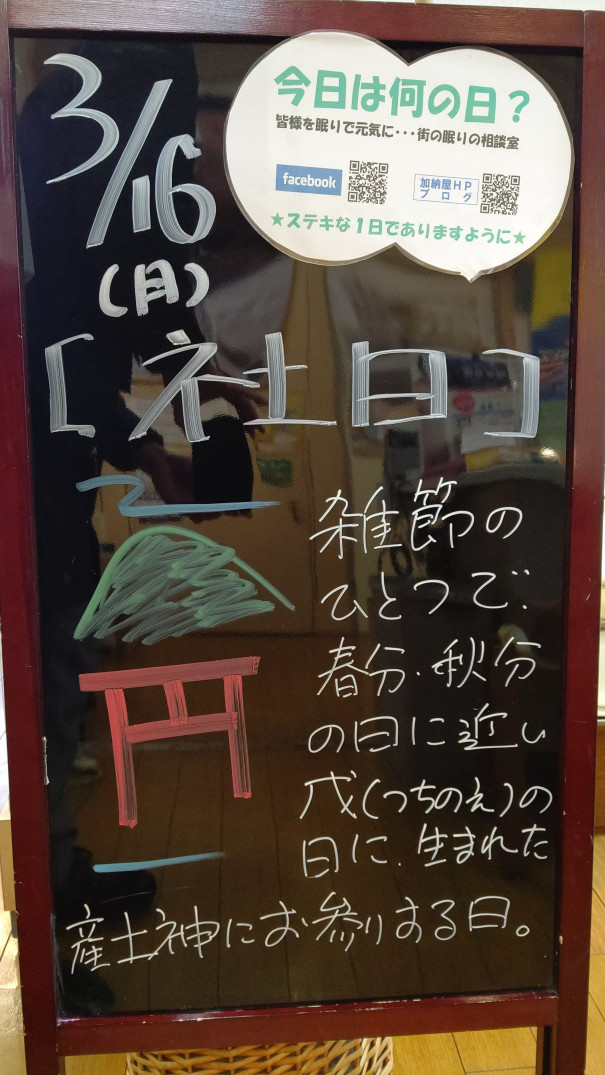 3/16
(月)
今日は何の日?
皆様を眠りで元気に・・・街の眠りの相談室
facebook
加納屋HP
ブログ
★ステキな1日でありますように★
[社日]
雑節の
ひとつで、
春分・秋分
の日に近い
戊(つちのえ)の
日に、生まれた
産土神にお参りする日。